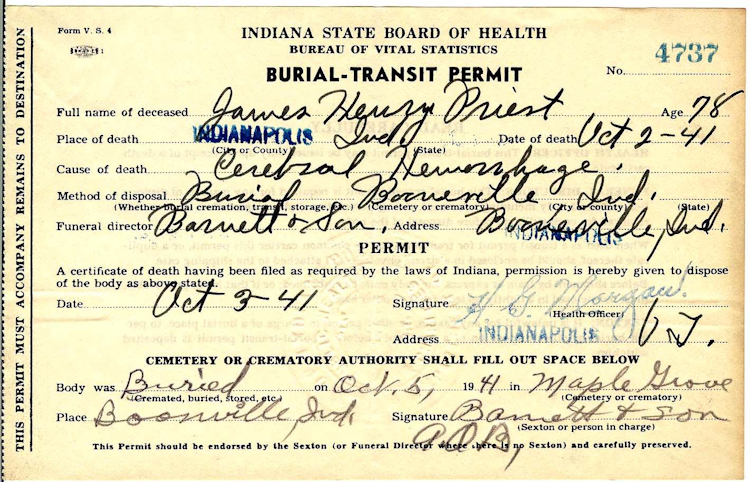 Form V. S. 4
INDIANA STATE BOARD OF HEALTH
BUREAU OF VITAL STATISTICS
BURIAL-TRANSIT PERMIT
No. 4737
Full name of deceased James Henry Priest Age 78
Place of death INDIANAPOLIS Ind. Date of death Oct 2-41
(City or County) (State)
Cause of death Cerebral Hemorrhage.
Method of disposal Burial Booneville Ind.
(Whether burial cremation, transit, storage, etc.) (Cemetery or crematory) (City or county) (State)
Funeral director Barnett & Son. Address Booneville, Ind.
INDIANAPOLIS
PERMIT
A certificate of death having been filed as required by the laws of Indiana, permission is hereby given to dispose
of the body as above stated.
Date Oct 3-41 Signature H. G. Morgan.
(Health Officer)
Address INDIANAPOLIS
CEMETERY OR CREMATORY AUTHORITY SHALL FILL OUT SPACE BELOW
Body was Buried on Oct. 5, 1941 in Maple Grove
(Cremated, buried, stored, etc.) (Cemetery or crematory)
Place Boonville, Ind. Signature Barnett & Son
(Sexton or person in charge)
This Permit should be endorsed by the Sexton (or Funeral Director where there is no Sexton) and carefully preserved.
THIS PERMIT MUST ACCOMPANY REMAINS TO DESTINATION